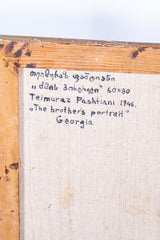 თეიმურაზ ფაშტიანი
„ ძმის პორტრეტი" 60x80
Teimuraz Pashtiani 1946.
„The brother's portrait"
Georgia